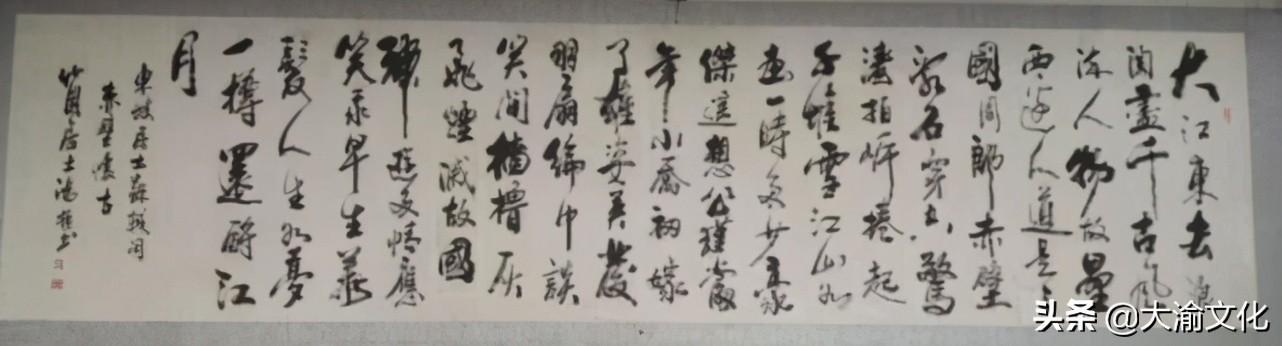 大江東去浪
淘盡千古風
流人物故壘
西邊人道是三
國周郎赤壁
亂石穿空驚
濤拍岸捲起
千堆雪江山如
畫一時多少豪
傑遙想公瑾當
年小喬初嫁
了雄姿英發
羽扇綸巾談
笑間檣櫓灰
飛煙滅故國
神遊多情應
笑我早生華
髮人生如夢
一樽還酹江
月
東坡居士蘇軾詞
赤壁懷古
居士
头条 @大渝文化